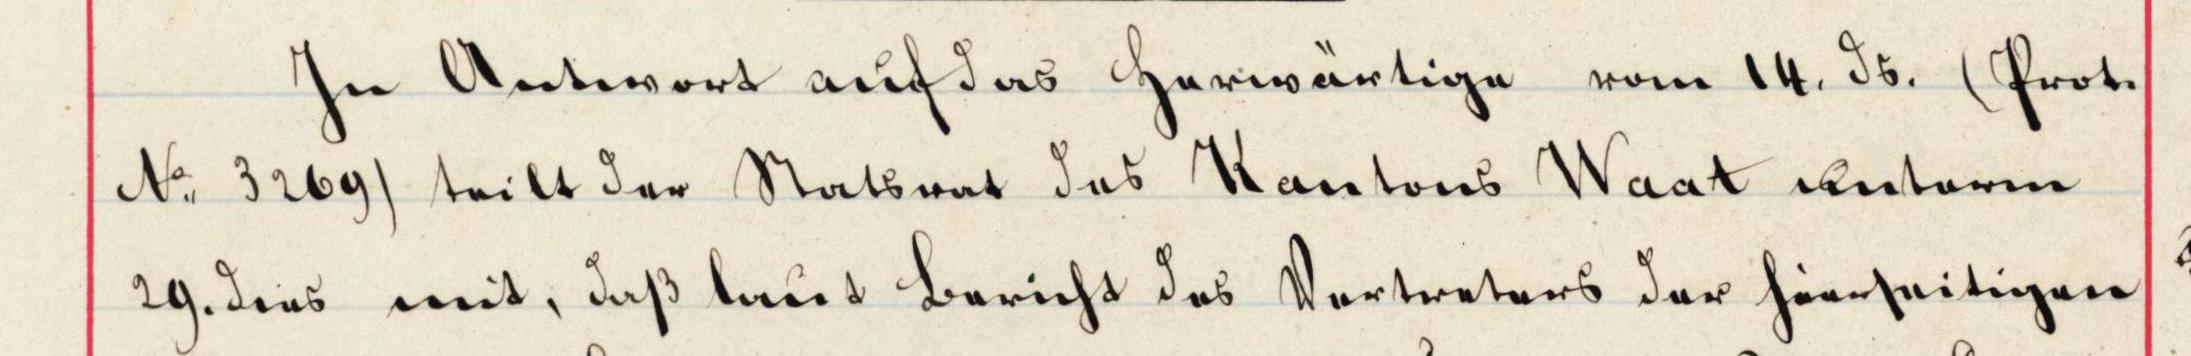 In Antwort auf das herwärtige vom 14. ds. (Prot.
No. 3269) teilt der Statsrat des Kantons Waat unterm
29. dies mit, daß laut Bericht des Vertreters der hierseitigen